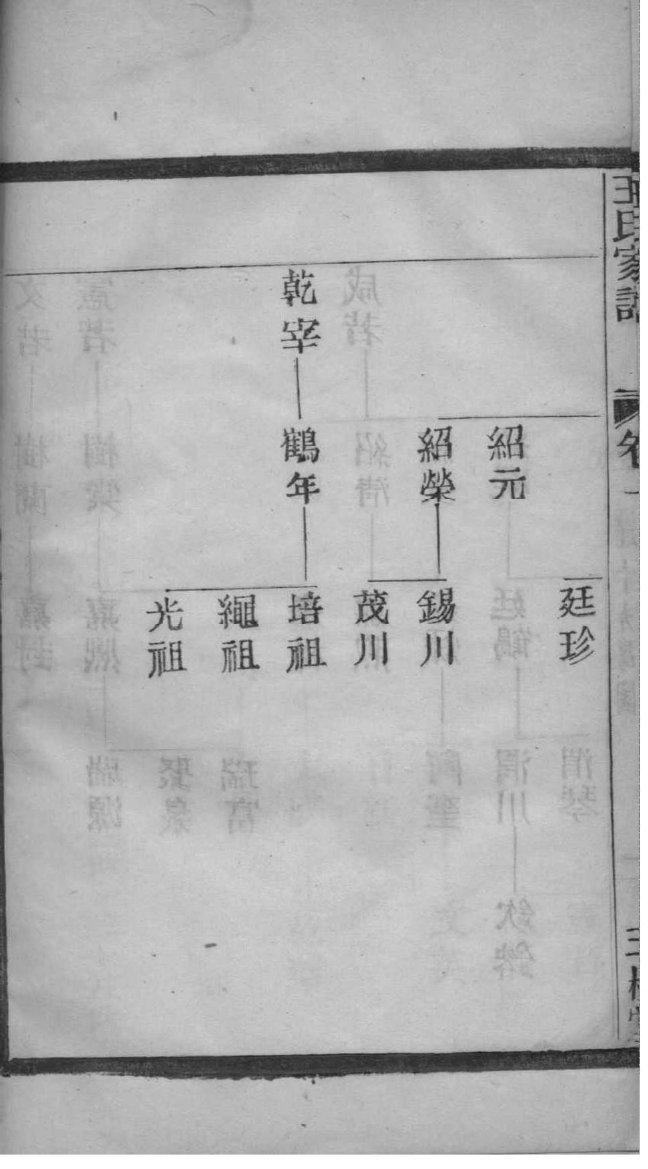 王氏家譜
卷一
廷珍
紹元
紹榮
錫川
茂川
乾宰
鶴年
培祖
繩祖
光祖
三槐堂